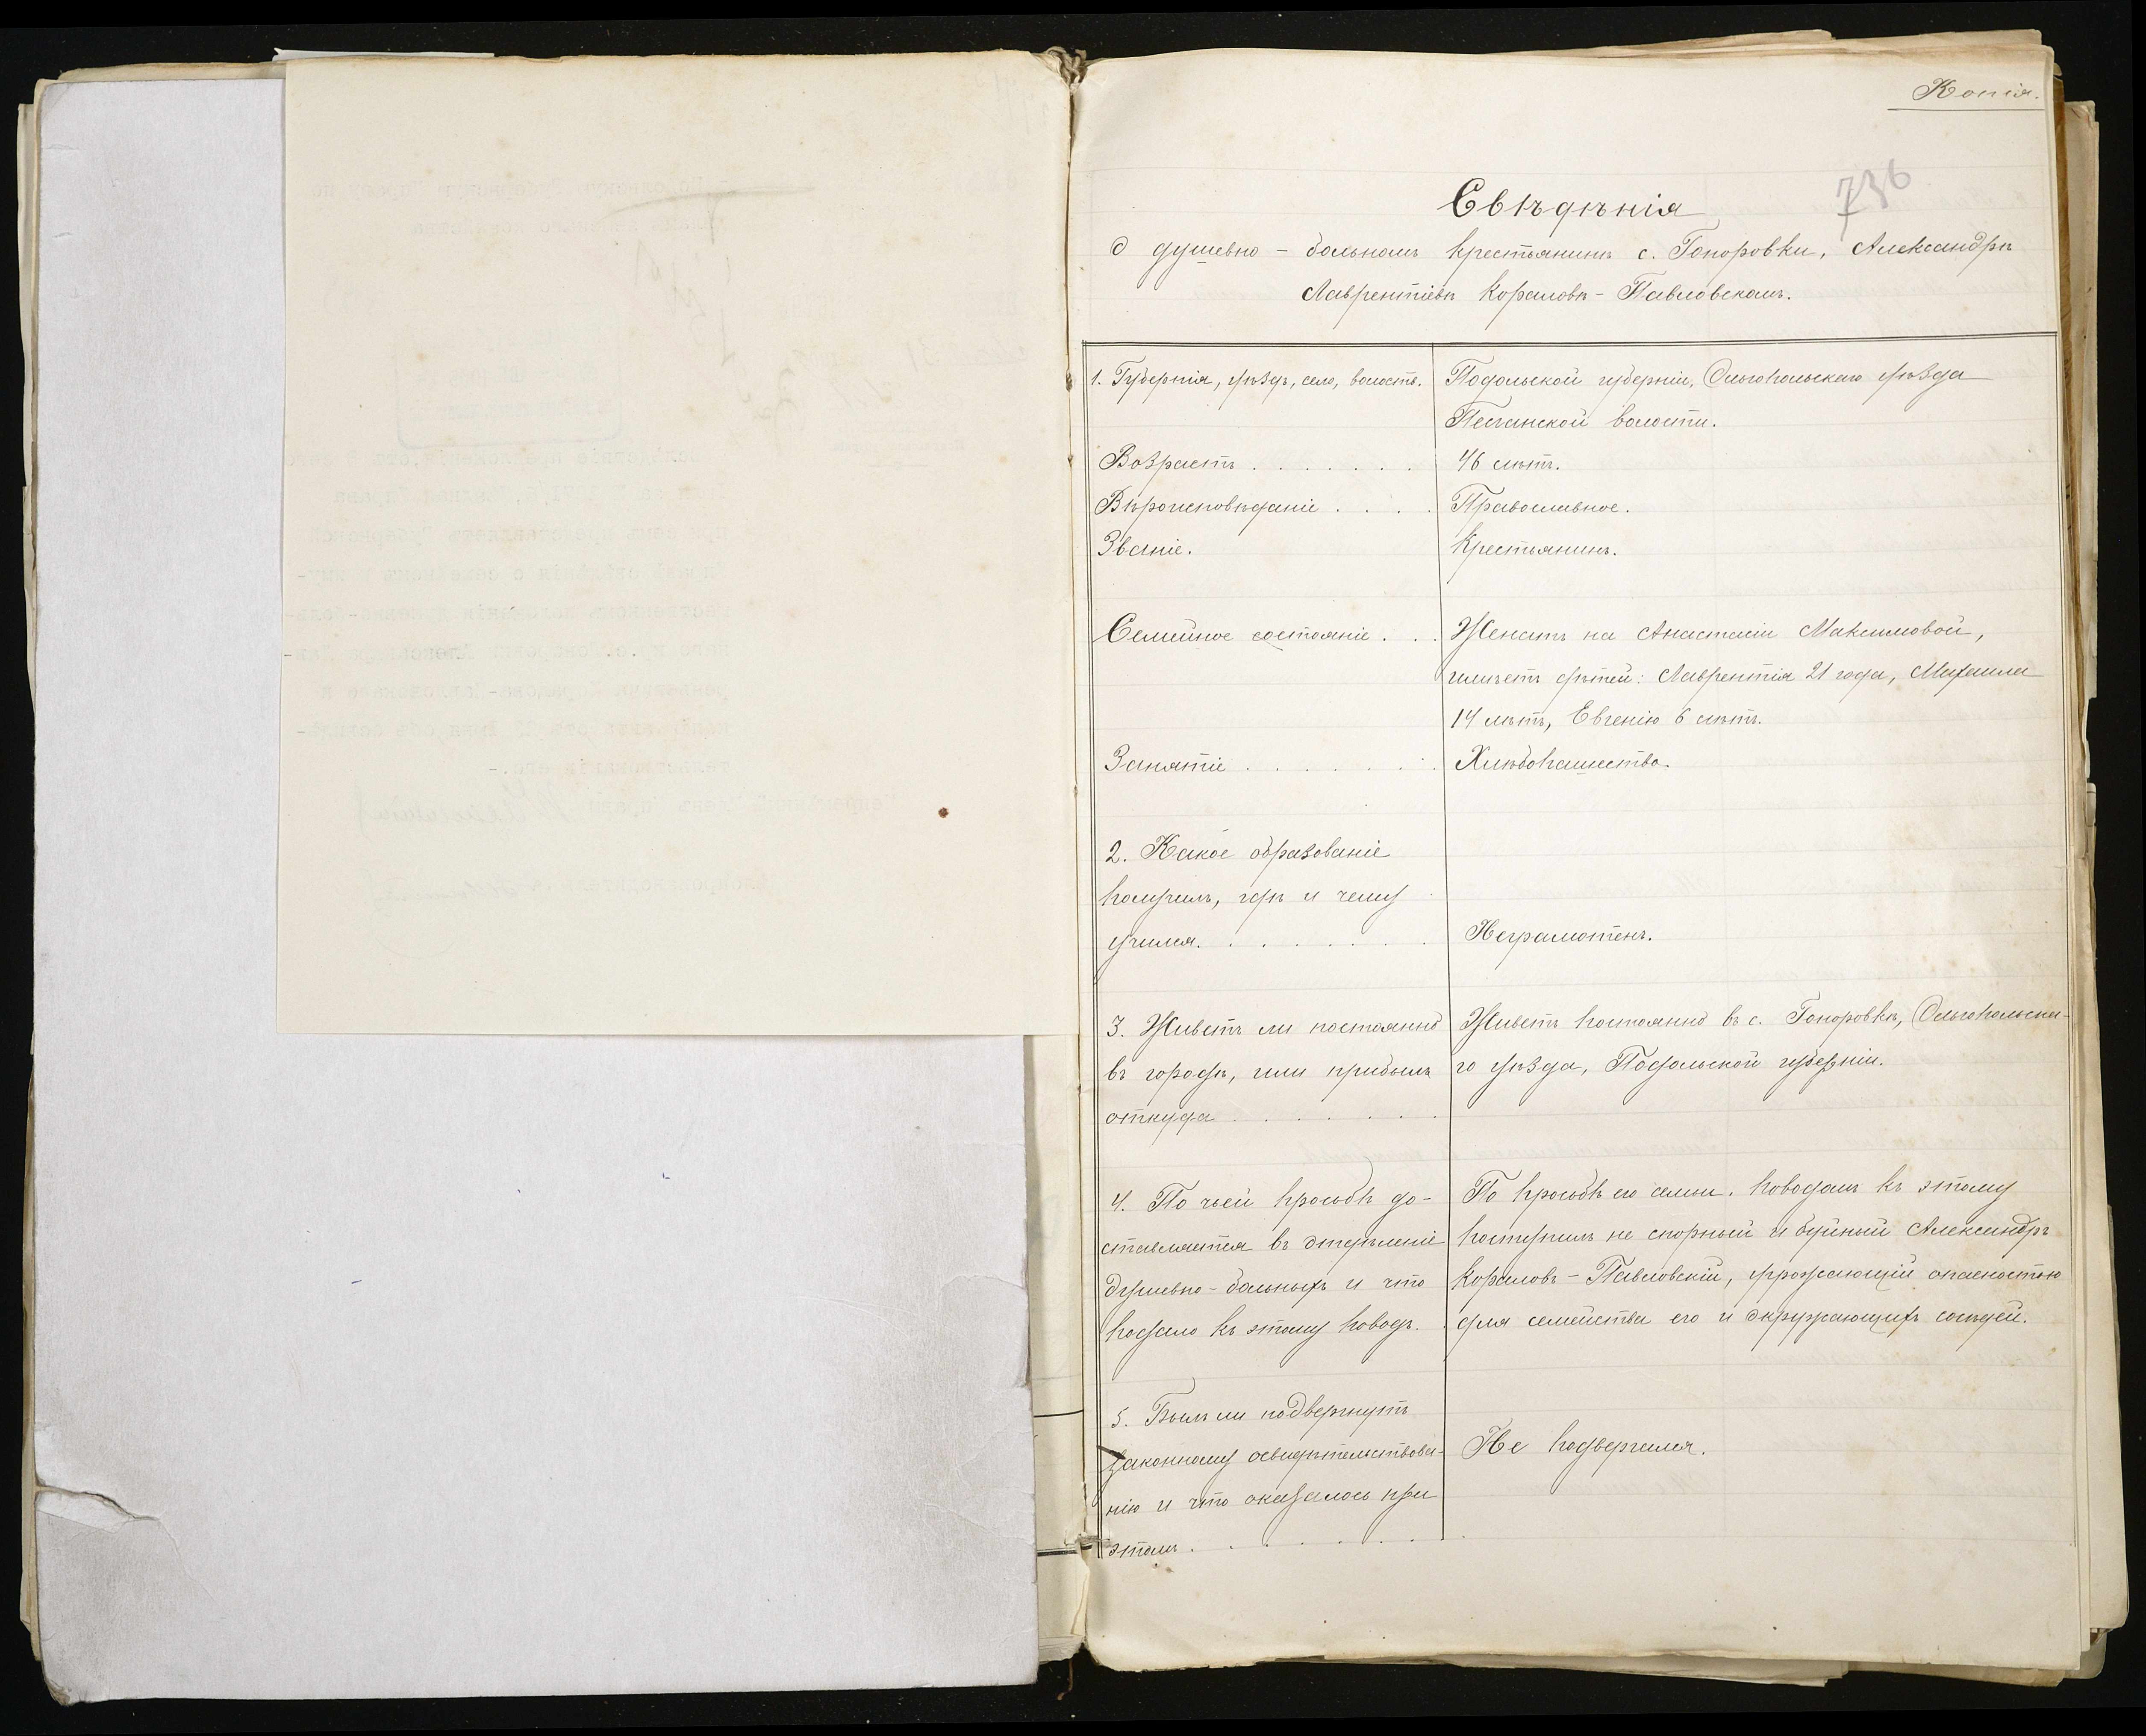 Копія.
736
Свѣдѣнія
о душевно-больномъ крестьянинѣ с. Топоровки, Александрѣ
Лаврентіевѣ Короловѣ-Павловскомъ.
1. Губернія, уѣздъ, село, волость.
Подольской губерніи, Ольгопольскаго уѣзда
Песчанской волости.
Возрастъ . . . . . . .
46 лѣтъ.
Вѣроисповѣданіе . . . .
Православное.
Званіе.
Крестьянинъ.
Семейное состояніе . . .
Женатъ на Анастасіи Максимовой,
имѣетъ дѣтей: Лаврентія 21 года, Михаила
14 лѣтъ, Евгенію 6 лѣтъ.
Занятіе . . . . . . .
Хлѣбопашество.
2. Какое образованіе
получилъ, гдѣ и чему
учился. . . . . . . .
Неграмотенъ.
3. Живетъ ли постоянно
въ городѣ, или прибылъ
откуда . . . . . . .
Живетъ постоянно въ с. Топоровкѣ, Ольгопольска-
го уѣзда, Подольской губерніи.
4. По чьей просьбѣ до-
ставляется въ отдѣленіе
душевно-больныхъ и что
подало къ этому поводъ.
По просьбѣ его семьи. поводомъ къ этому
послужилъ не спорный и буйный Александръ
Короловъ-Павловскій, угрожающій опасностью
для семейства его и окружающихъ сосѣдей.
5. Былъ ли подвергнутъ
законному освидѣтельствова-
нію и что оказалось при
этомъ . . . . . . . .
Не подвергался.